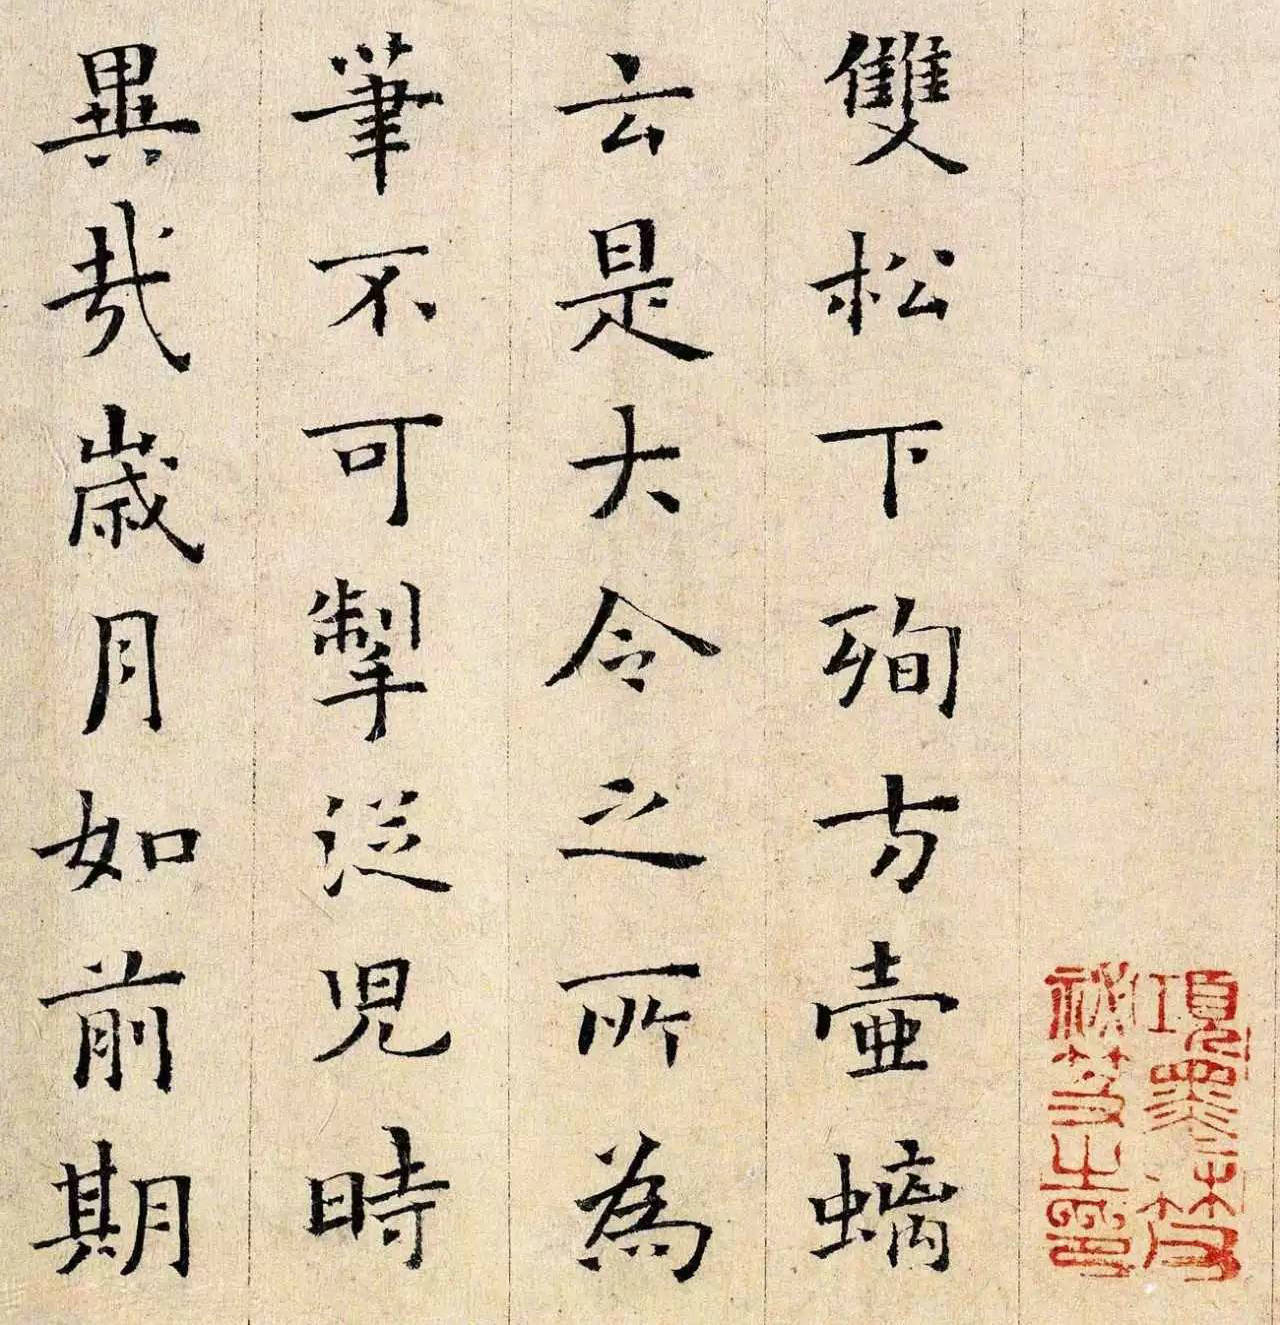 項墨林父
祕笈之印
雙松下殉方壺螭
云是大令之所為
筆不可掣從兒時
異哉歲月如前期